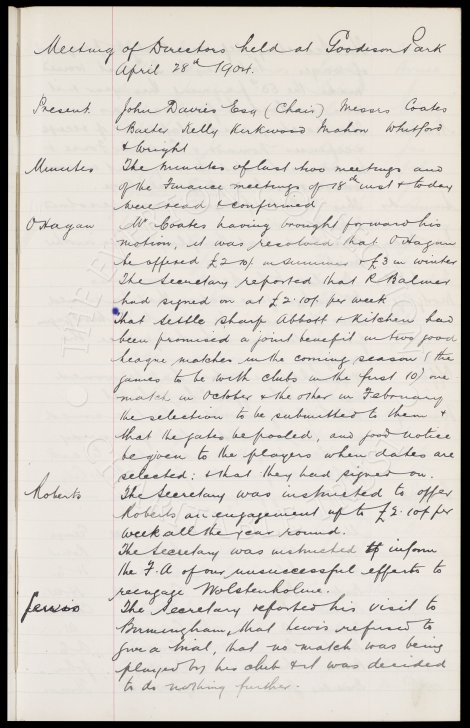 Meeting of Directors held at Goodison Park
April 28th 1904.
Present John Davies Esq (Chair) Messrs Coates
Baxter Kelly Kirkwood Mahon Whitford
& Wright
Minutes The minutes of last two meetings and
of the Finance meetings of 18th inst & today
were read & confirmed
O'Hagan Mr Coates having brought forward his
motion, it was resolved that O'Hagan
be offered £2.10/- in summer & £3 in winter
The Secretary reported that R Balmer
had signed on at £2.10/- per week
that Settle Sharp Abbott & Kitchen had
been promised a joint benefit in two good
League matches in the coming season (the
games to be with clubs in the first 10) one
match in October & the other in February
the selection to be submitted to them &
that the gates be pooled, and good notice
be given to the players when dates are
selected: & that they had signed on.
Roberts The Secretary was instructed to offer
Roberts an engagement up to £2.10/- per
week all the year round.
The Secretary was instructed to inform
the F.A of our unsuccessful efforts to
reengage Wolstenholme.
Lewis The Secretary reported his visit to
Birmingham, that Lewis refused to
give a trial, that no match was being
played by his club & it was decided
to do nothing further.